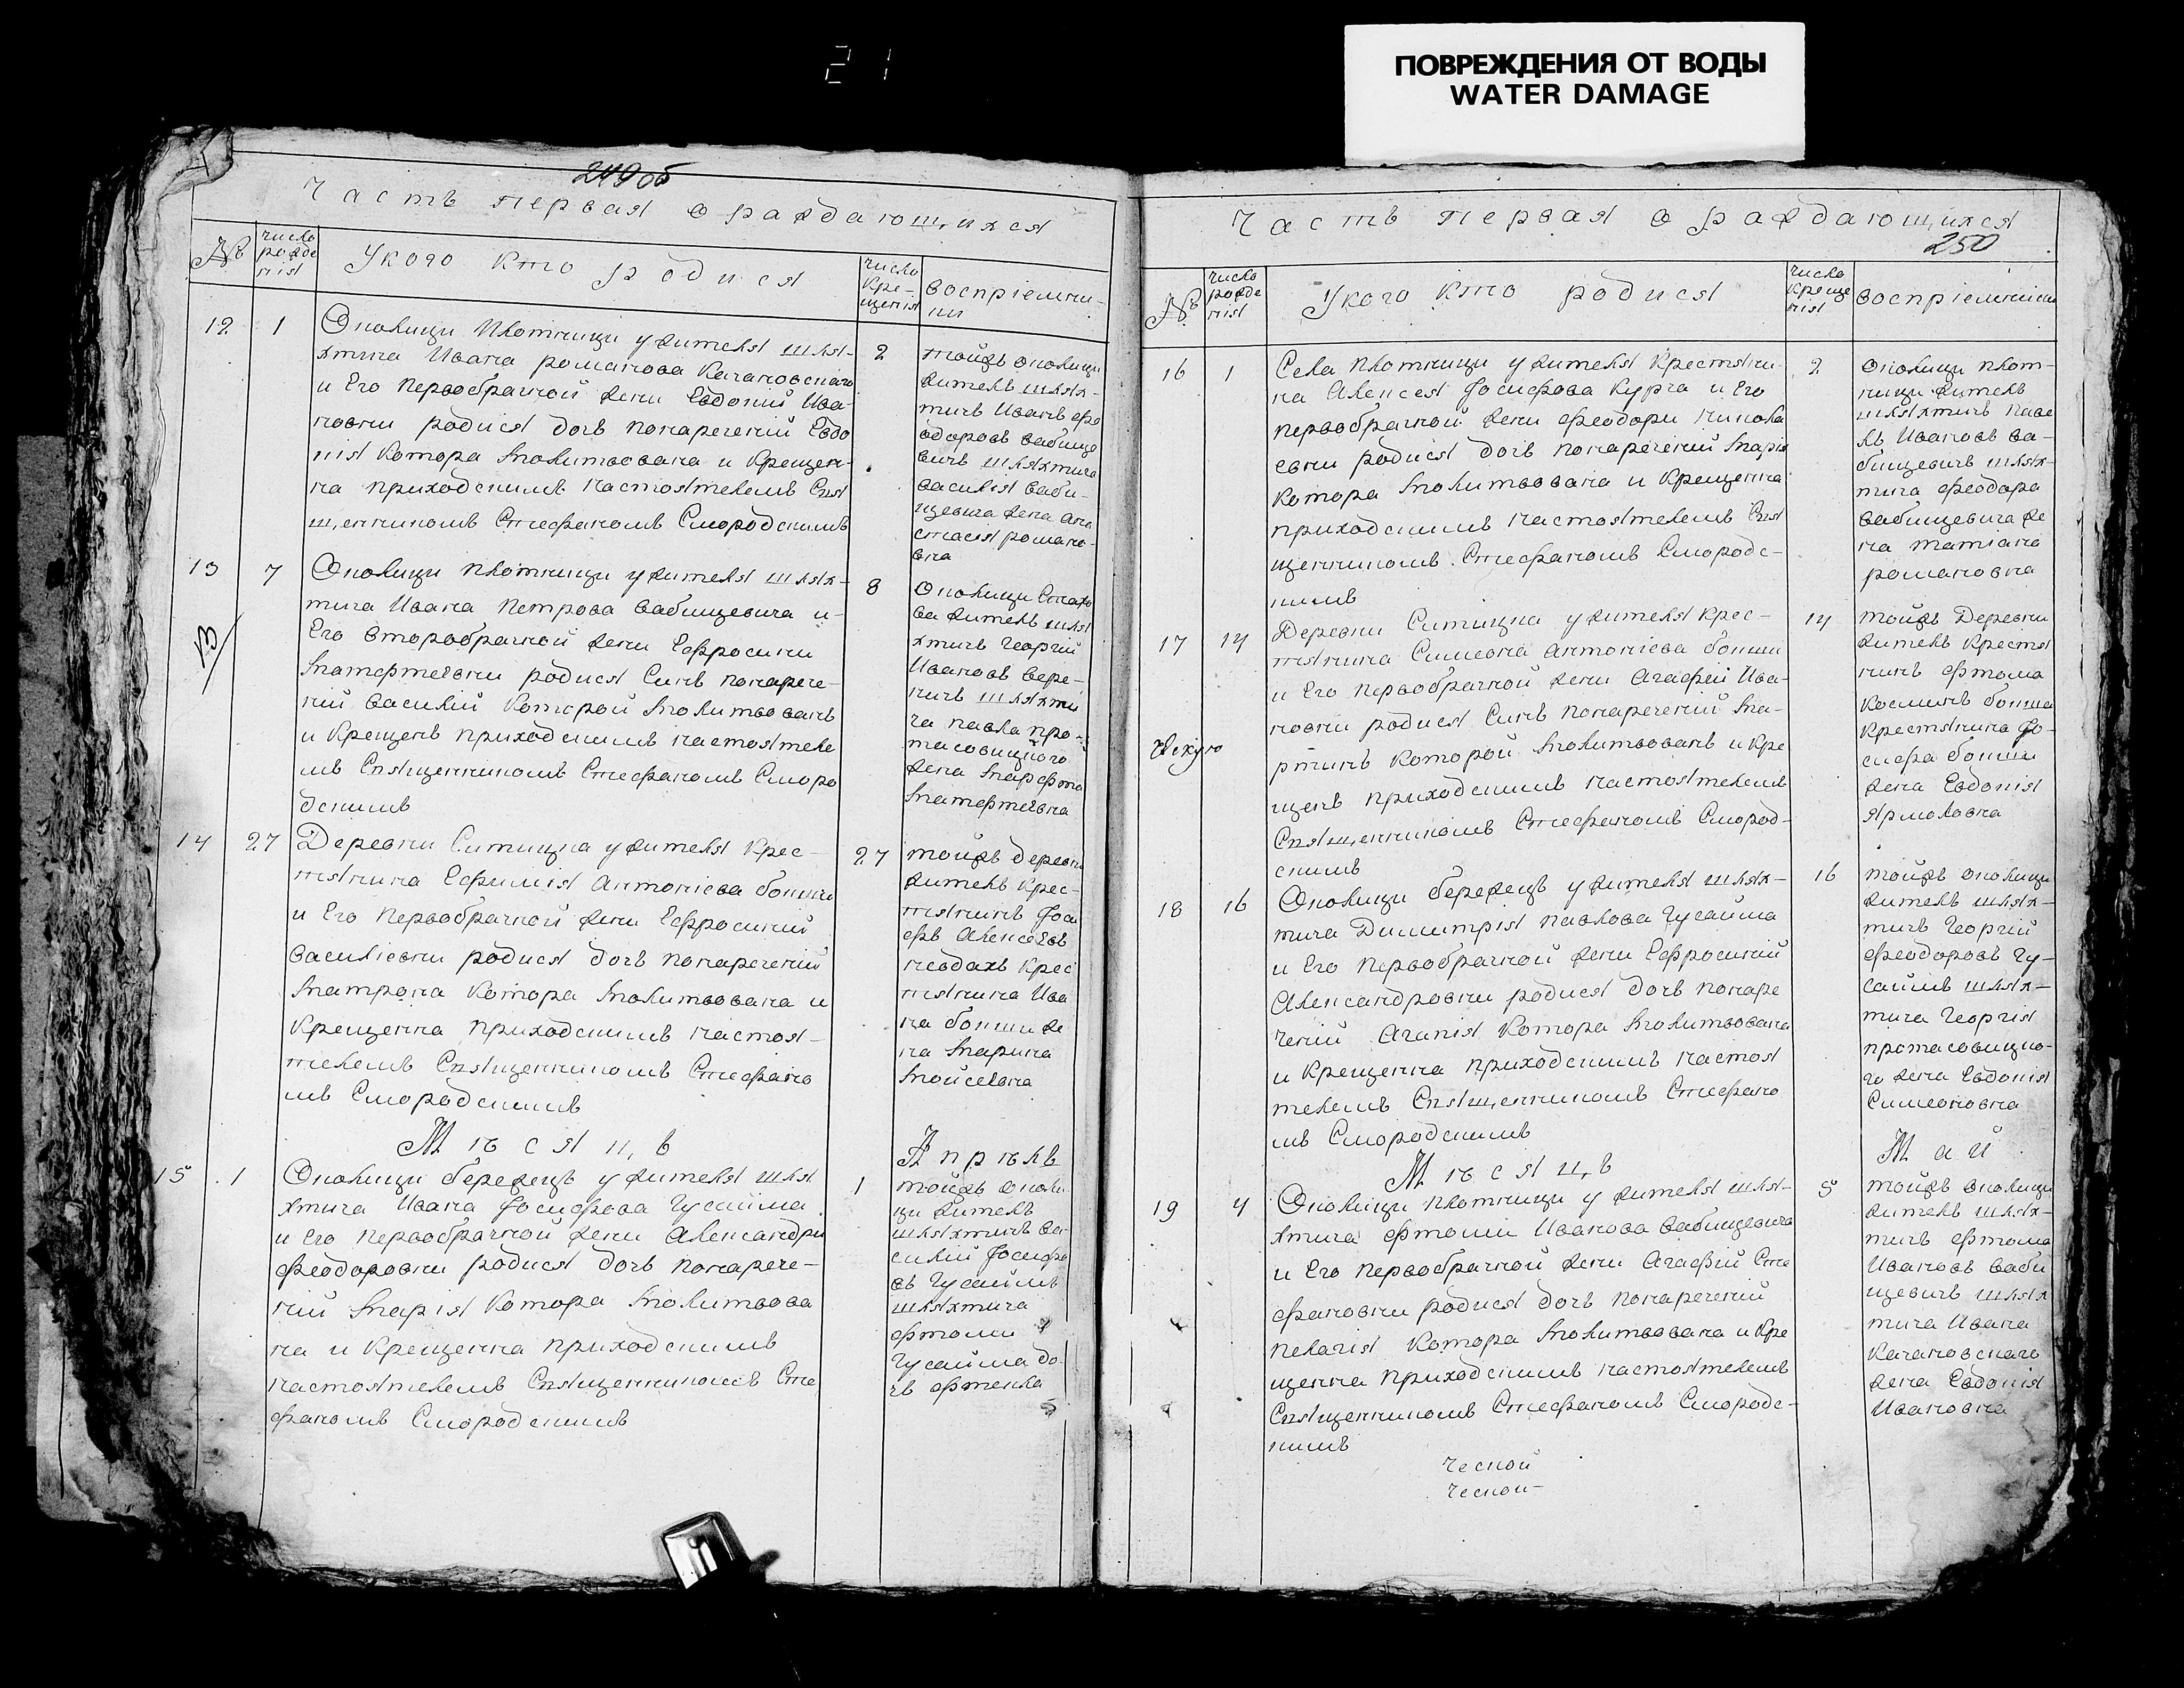 21
ПОВРЕЖДЕНИЯ ОТ ВОДЫ
WATER DAMAGE
249об
Часть первая о раждающихся
№
число рожденія
У кого кто родися
число крещенія
воспріемники
12 1
Околици Плотници у жителя шля-
хтича Ивана романова Качановскаго
и Его Первобрачной жени Евдокіи Ива-
новни родися дочь понареченій Евдо
кія Котора Молитвована и Крещен-
на приходскимъ настоятелемъ Свя
щенникомъ Стефаномъ Смородскимъ
2
тойжъ околици
житель шлях-
тичъ Иванъ фео
одоровъ вабище
вичъ шляхтича
василія Ваби-
щевича жена Ана
стасія романо-
вна
13 7
Околици Плотници у жителя шлях-
тича Ивана Петрова Вабищевича и
Его Второбрачной жени Ефросини
Матфтеевни родися Синъ понарече-
ній Василій Которой Молитвованъ
и Крещенъ приходскимъ настоятеле
мъ Священникомъ Стефаномъ Сморо
дскимъ
8
Околици Стахо
ва житель шля
хтичъ Георгій
Ивановъ Вере-
ничъ шляхти
ча павла про-
тасовицкого
жена Марфта
Матфтеевна
14 27
Деревни Ситицка у жителя Крес-
тянина Ефимія Антоніева бокши
и Его Первобрачной жени Ефросиній
Василіевни родися дочь понареченій
Матрона Котора Молитвована и
Крещенна приходскимъ настоя-
телемъ Священникомъ Стефано
мъ Смородскимъ
27
тойжъ деревни
житель Крес-
тянинъ Фоси
фъ Алексеевъ
невдахъ Крес
тянина Ива
на бокши же
на Марина
Мойсеевна
Мѣсяцъ
Апрѣль
15 1
Околици бережецъ у жителя шля
хтича Ивана Фосифова Гусаима
и Его Первобрачной жени Александри
феодоровни родися дочь понарече-
ній Марія Котора Молитвова
на и Крещенна приходскимъ
настоятелемъ Священникомъ Сте
фаномъ Смородскимъ
1
тойжъ околи
ци житель
шляхтичъ ва-
силій Фосифо
въ Гусаимъ
шляхтича
фтоми
Гусаима до
чъ фтекла
Часть первая о раждающихся
250
№
число рожденія
У кого кто родися
число крещенія
воспріемники
16 1
Села Плотници у жителя Крестяни-
на Алексея Фосифова Курга и Его
первобрачной жени феодори Никола
евни родися дочь понареченій Марія
Котора Молитвована и Крещенна
приходскимъ настоятелемъ Свя
щенникомъ Стефаномъ Смородс-
кимъ
2
Околици плот-
ници житель
шляхтичъ паве
лъ Ивановъ ва-
бищевичъ шлях-
тича феодора
вабищевича же
на татіана
романовна
17 14
Деревни Ситицка у жителя Крес-
тянина Симеона Антоніева бокши
и Его Первобрачной жени Агафіи Ива-
новни родися Синъ понареченій Ма-
ртинъ Которой Молитвованъ и Кре
щенъ приходскимъ настоятелемъ
Священникомъ Стефаномъ Смород-
скимъ
14
тойжъ Деревни
житель Крестя
нинъ фтома
Косминъ бокша
Крестянина Фо-
сифа бокши
жена Евдокія
Ярмоловна
18 16
Околици бережецъ у жителя шлях-
тича Димитрія павлова Гусаима
и Его Первобрачной жени Ефросиній
Александровни родися дочь понаре
ченій Агапія Котора Молитвована
и Крещенна приходскимъ настоя
телемъ Священникомъ Стефано
мъ Смородскимъ
16
тойжъ околици
житель шлях-
тичъ Георгій
феодоровъ Гу-
саимъ шлях-
тича Георгія
протасовицко-
го жена Евдокія
Симеоновна
Мѣсяцъ
Май
19 4
Околици Плотници у жителя шля-
хтича фтоми Иванова вабищевича
и Его Первобрачной жени Агафій Сте
фановни родися дочь понареченій
Пелагія Котора Молитвована и Кре
щенна приходскимъ настоятелемъ
Священникомъ Стефаномъ Смородс-
кимъ
5
тойжъ околици
житель шлях-
тичъ фтома
Ивановъ ваби
щевичъ шлях
тича Ивана
Качановскаго
жена Евдокія
Ивановна
Чесной
Чесной